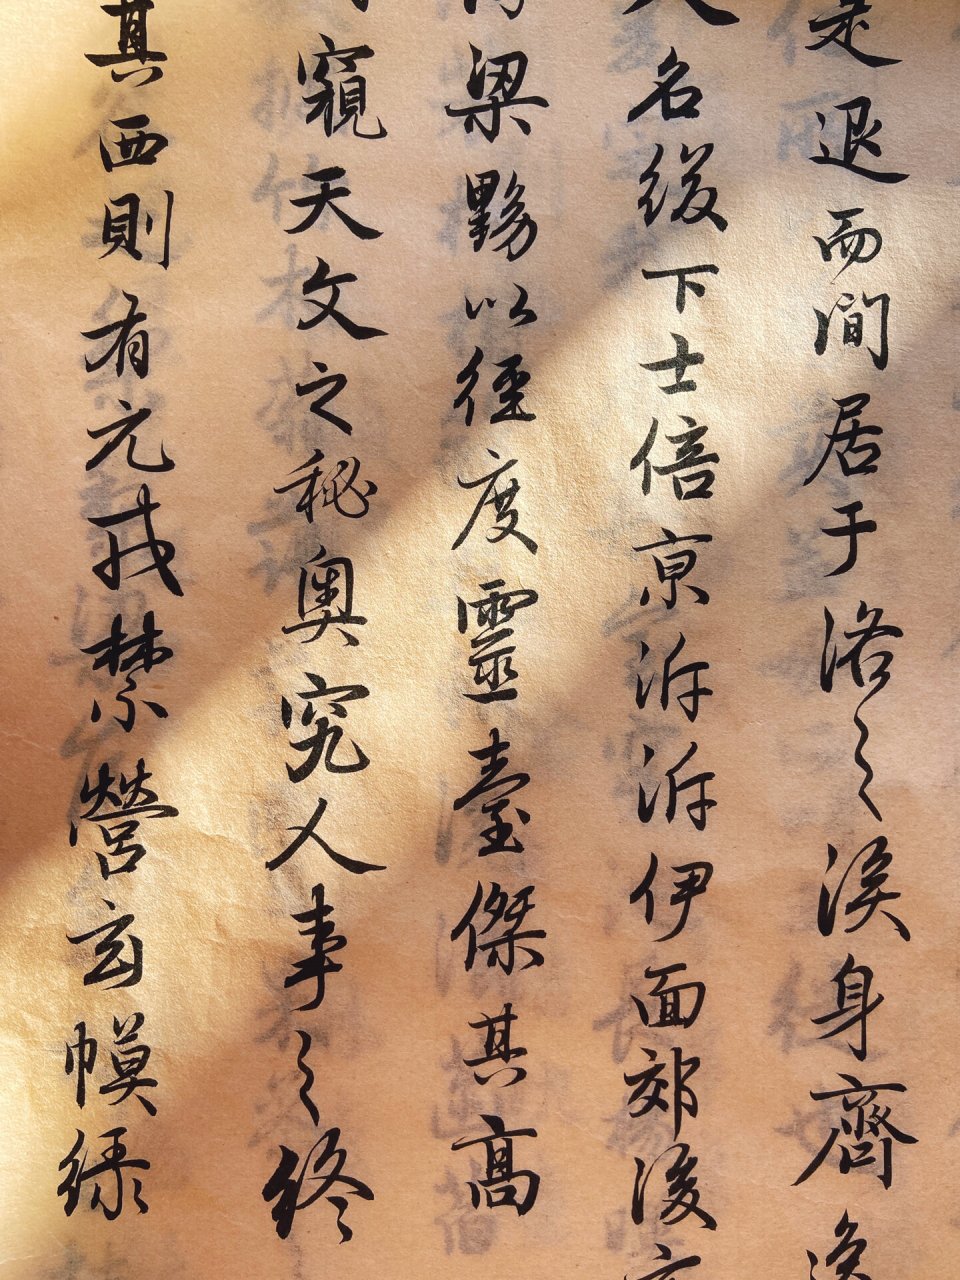 是退而間居于洛之涘身齊
名綴下士倍京泝泝伊面郊後
梁黝以徑度靈臺傑其高
窺天文之秘奧究人事之終
其西則有元戎禁營玄幙綠